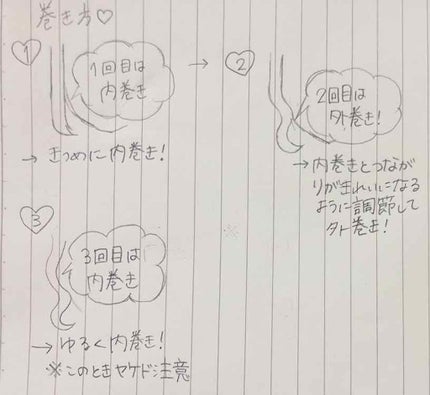 巻き方♡
①
1回目は
内巻き
→
→ きつめに内巻き!
②
2回目は
外巻き!
→ 内巻きとつなが
りがきれいになる
ように調節して
外巻き!
③
3回目は
内巻き
→ ゆるく内巻き!
※このときヤケド注意